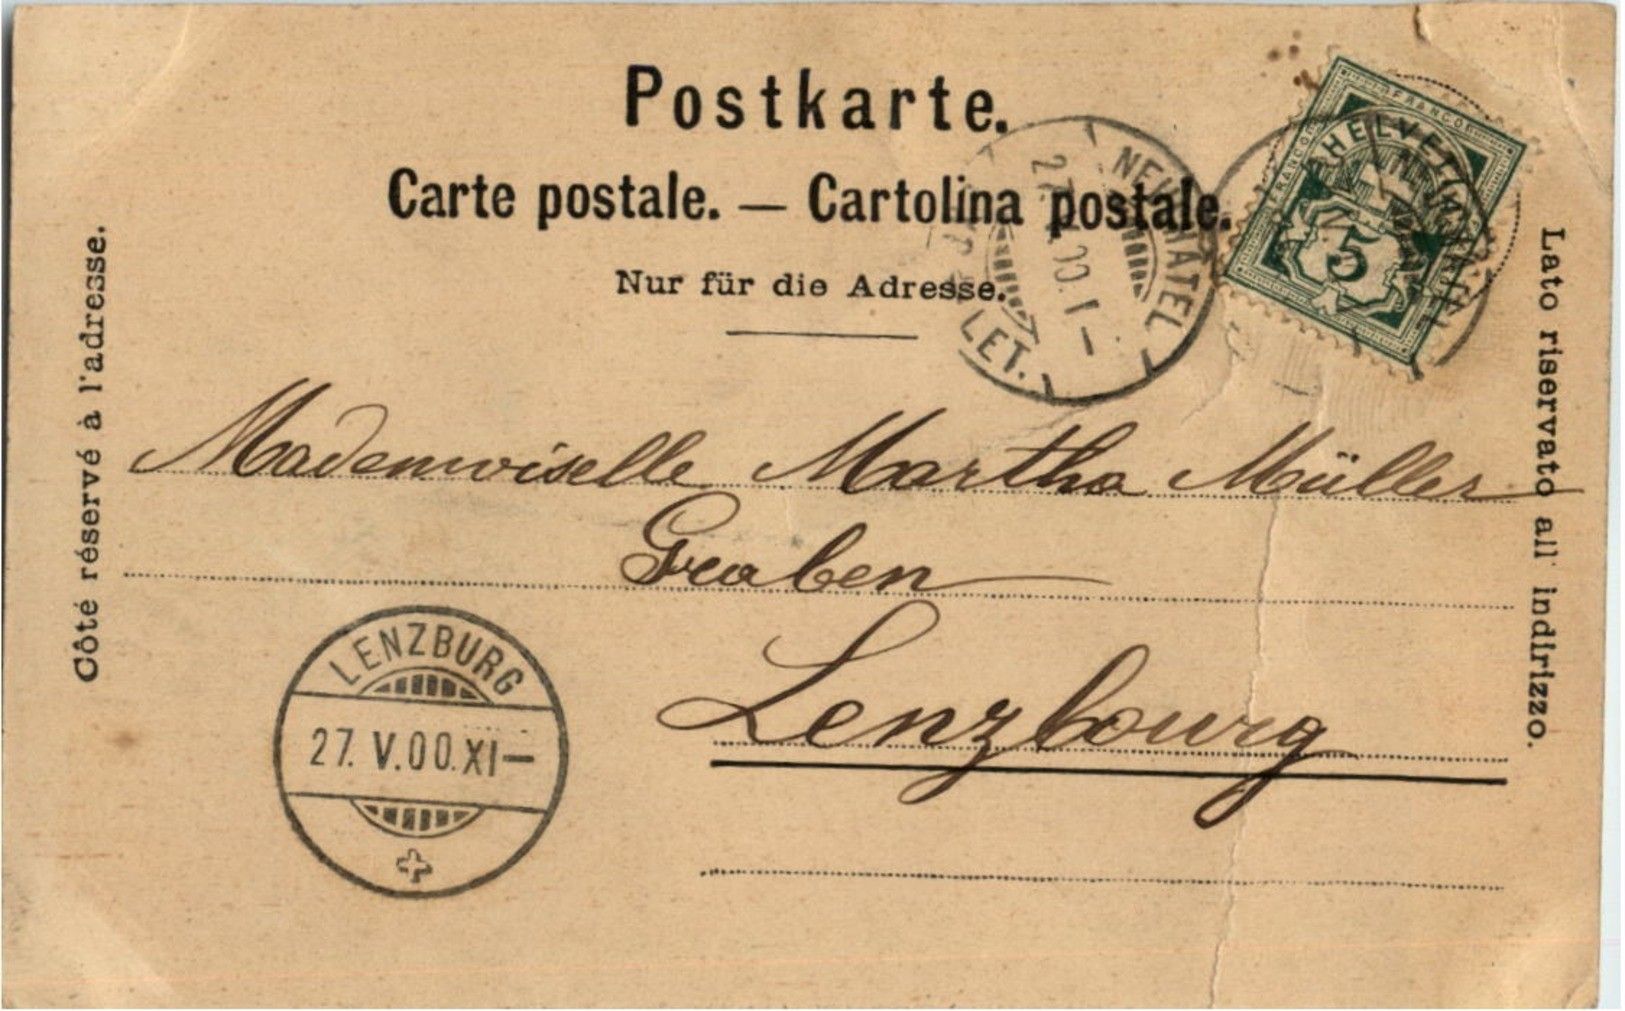 Postkarte.
Carte postale. — Cartolina postale.
Nur für die Adresse.
Côté réservé à l'adresse.
Lato riservato all' indirizzo.
FRANCO
FRANCO
HELVETIA
5
NEUCHÂTEL
27. V.00.I–
LET.
Mademoiselle Martha Müller
Graben
Lenzbourg
LENZBURG
27. V.00.XI–